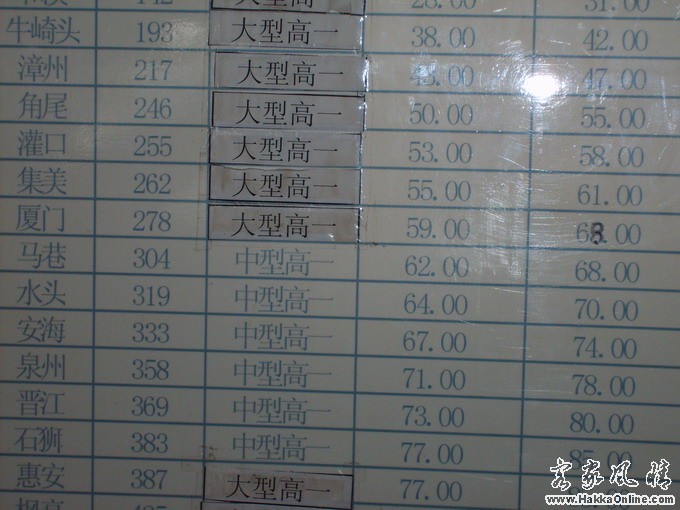 牛崎头 193 大型高一 38.00 42.00
漳州 217 大型高一 43.00 47.00
角尾 246 大型高一 50.00 55.00
灌口 255 大型高一 53.00 58.00
集美 262 大型高一 55.00 61.00
厦门 278 大型高一 59.00 68.00
马巷 304 中型高一 62.00 68.00
水头 319 中型高一 64.00 70.00
安海 333 中型高一 67.00 74.00
泉州 358 中型高一 71.00 78.00
晋江 369 中型高一 73.00 80.00
石狮 383 中型高一 77.00 85.00
惠安 387 大型高一 77.00
客家风情
www.HakkaOnline.com